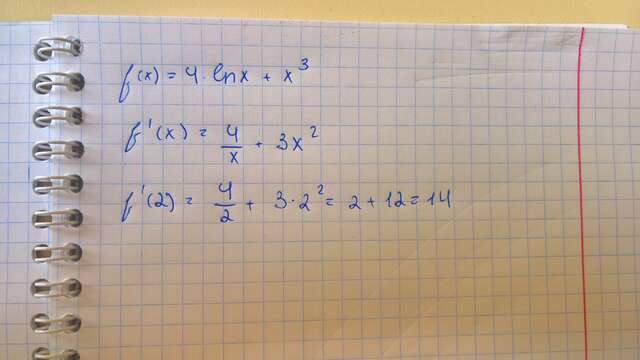 f(x) = 4 · ln x + x³
f'(x) = 4/x + 3x²
f'(2) = 4/2 + 3·2² = 2 + 12 = 14